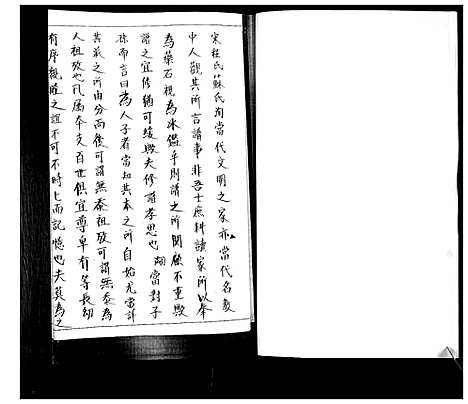 宋程氏蘇氏洵當代文明之家亦當代名教
中人觀其所言譜事非吾士庶科讀家所以奉
為藥石視為冰鑑乎則譜之所関顧不重歟
譜之宜修猶可緩歟夫修譜孝思也湖當對子
孫而言曰為人子者當知其本之所自始尤當詳
其派之所由分而後可謂無忝祖攷可謂無忝為
人祖攷也凡属本支百世俱宜尊卑有等長幼
有序親睦之誼不可不時匕而記憶也夫莫為之